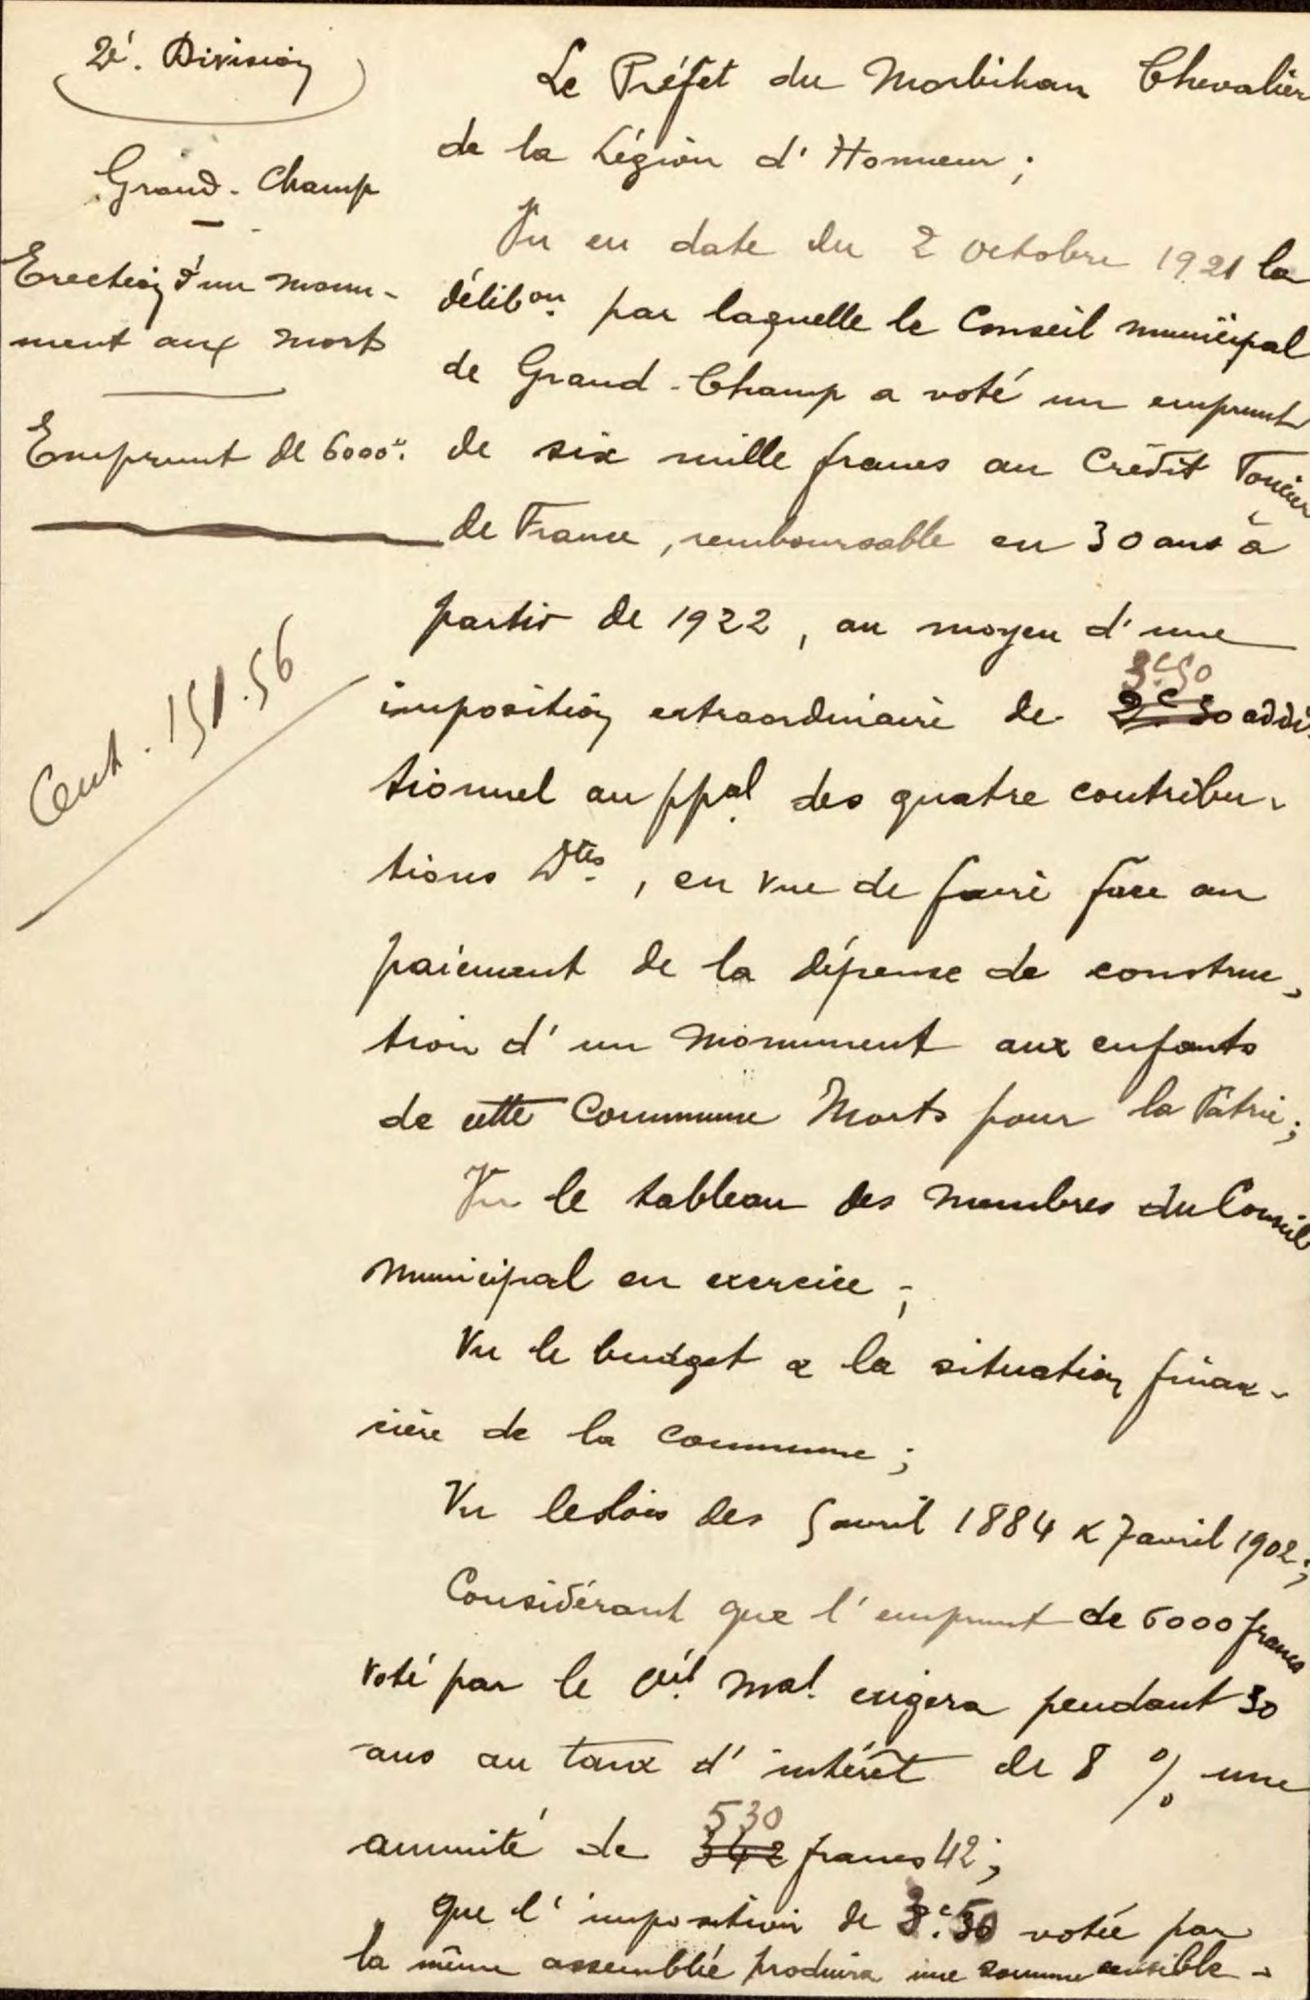 2è. Division
Grand-Champ
Erection d'un monu-
ment aux morts
Emprunt de 6000f.
Cent. 151.56
Le Préfet du Morbihan Chevalier
de la Légion d'Honneur ;
Vu en date du 2 octobre 1921 la
délibon. par laquelle le Conseil municipal
de Grand-Champ a voté un emprunt
de six mille francs au Crédit Foncier
de France, remboursable en 30 ans à
partir de 1922, au moyen d'une
3c50
imposition extraordinaire de 2c30 addi-
tionnel au ppal. des quatre contribu-
tions Dtes., en vue de faire face au
paiement de la dépense de construc-
tion d'un monument aux enfants
de cette Commune Morts pour la Patrie ;
Vu le tableau des membres du Conseil
municipal en exercice ;
Vu le budget & la situation finan-
cière de la commune ;
Vu les lois des 5 avril 1884 & 7 avril 1902 ;
Considérant que l'emprunt de 6000 francs
voté par le Ceil. Mal. exigera pendant 30
ans au taux d'intérêt de 8 % une
530
annuité de 342 francs 42 ;
que l'imposition de 3c.50 votée par
la même assemblée produira une somme sensible-